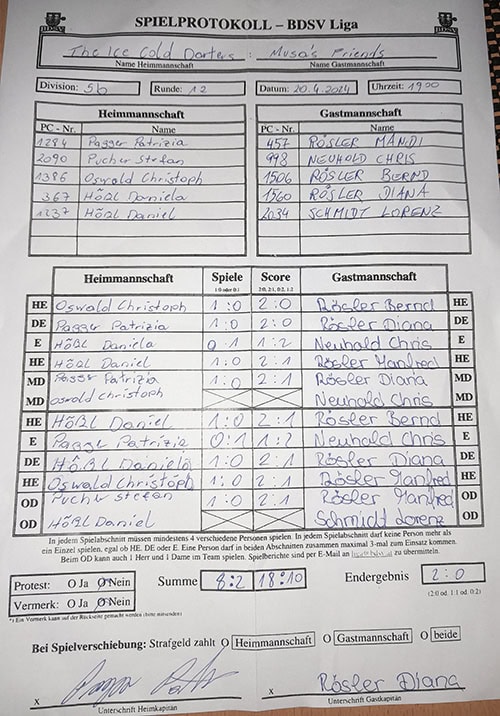 SPIELPROTOKOLL – BDSV Liga
The Ice Cold Darters : Musa's Friends
Name Heimmannschaft Name Gastmannschaft
Division: 5b Runde: 12 Datum: 20.4.2024 Uhrzeit: 1900
Heimmannschaft Gastmannschaft
PC - Nr. Name PC - Nr. Name
1284 Pagger Patrizia 457 RÖSLER MANDI
2090 Pucher Stefan 998 NEUHOLD CHRIS
1386 Oswald Christoph 1506 RÖSLER BERND
367 Hößl Daniela 1560 RÖSLER DIANA
1237 Hößl Daniel 2034 SCHMIDT LORENZ
Heimmannschaft Spiele Score Gastmannschaft
1:0 oder 0:1 2:0, 2:1, 0:2, 1:2
HE Oswald Christoph 1:0 2:0 Rösler Bernd HE
DE Pagger Patrizia 1:0 2:0 Rösler Diana DE
E Hößl Daniela 0:1 1:2 Neuhald Chris E
HE Hößl Daniel 1:0 2:1 Rösler Manfred HE
MD Pagger Patrizia 1:0 2:1 Rösler Diana MD
MD Oswald Christoph Neuhald Chris MD
HE Hößl Daniel 1:0 2:1 Rösler Bernd HE
E Pagger Patrizia 0:1 1:2 Neuhald Chris E
DE Hößl Daniela 1:0 2:1 Rösler Diana DE
HE Oswald Christoph 1:0 2:1 Rösler Manfred HE
OD Pucher Stefan 1:0 2:1 Rösler Manfred OD
OD Hößl Daniel Schmidt Lorenz OD
In jedem Spielabschnitt müssen mindestens 4 verschiedene Personen spielen. In jedem Spielabschnitt darf keine Person mehr als
ein Einzel spielen, egal ob HE, DE oder E. Eine Person darf in beiden Abschnitten zusammen maximal 3-mal zum Einsatz kommen.
Beim OD kann auch 1 Herr und 1 Dame im Team spielen. Spielberichte sind per E-Mail an zu übermitteln.
Protest: O Ja O Nein Summe 8:2 18:10 Endergebnis 2:0
Vermerk: O Ja O Nein (2:0 od. 1:1 od. 0:2)
*) Ein Vermerk kann auf der Rückseite gemacht werden (bitte anwenden)
Bei Spielverschiebung: Strafgeld zahlt O Heimmannschaft O Gastmannschaft O beide
x Pagger x Rösler Diana
Unterschrift Heimkapitän Unterschrift Gastkapitän